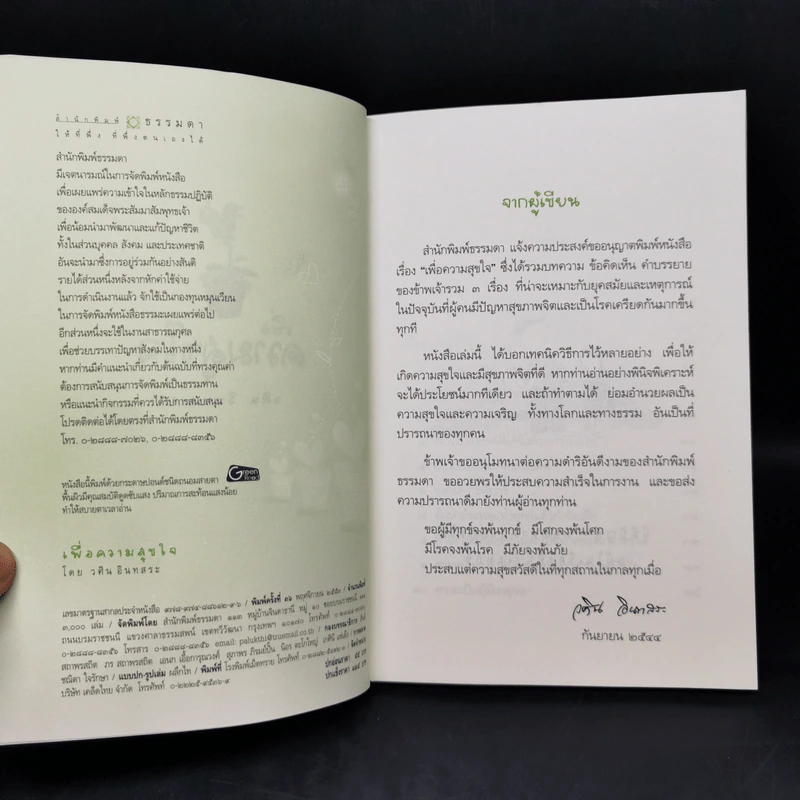 สำนักพิมพ์ ธรรมดา
ให้ที่พึ่ง ที่พึ่งตนเองได้
สำนักพิมพ์ธรรมดา
มีเจตนารมณ์ในการจัดพิมพ์หนังสือ
เพื่อเผยแพร่ความเข้าใจในหลักธรรมปฏิบัติ
ขององค์สมเด็จพระสัมมาสัมพุทธเจ้า
เพื่อน้อมนำมาพัฒนาและแก้ปัญหาชีวิต
ทั้งในส่วนบุคคล สังคม และประเทศชาติ
อันจะนำมาซึ่งการอยู่ร่วมกันอย่างสันติ
รายได้ส่วนหนึ่งหลังจากหักค่าใช้จ่าย
ในการดำเนินงานแล้ว จักใช้เป็นกองทุนหมุนเวียน
ในการจัดพิมพ์หนังสือธรรมะเผยแพร่ต่อไป
อีกส่วนหนึ่งจะใช้ในงานสาธารณกุศล
เพื่อช่วยบรรเทาปัญหาสังคมในทางหนึ่ง
หากท่านมีคำแนะนำเกี่ยวกับต้นฉบับที่ทรงคุณค่า
ต้องการสนับสนุนการจัดพิมพ์เป็นธรรมทาน
หรือแนะนำกิจกรรมที่ควรได้รับการสนับสนุน
โปรดติดต่อได้โดยตรงที่สำนักพิมพ์ธรรมดา
โทร. ๐-๒๘๘๘-๗๐๒๖, ๐-๒๘๘๘-๘๓๕๖
หนังสือนี้พิมพ์ด้วยกระดาษปอนด์ชนิดถนอมสายตา
พื้นผิวมีคุณสมบัติดูดซับแสง ปริมาณการสะท้อนแสงน้อย
ทำให้สบายตาเวลาอ่าน
Green Read
เพื่อความสุขใจ
โดย วศิน อินทสระ
เลขมาตรฐานสากลประจำหนังสือ ๙๗๘-๙๗๔-๘๘๖๑๒-๙-๖ / พิมพ์ครั้งที่ ๓๖ พฤศจิกายน จำนวนพิมพ์
๓,๐๐๐ เล่ม / จัดพิมพ์โดย สำนักพิมพ์ธรรมดา ๑๑๓ หมู่บ้านจินดาธานี หมู่ ๑๐
ถนนบรมราชชนนี แขวงศาลาธรรมสพน์ เขตทวีวัฒนา กรุงเทพฯ ๑๐๑๗๐ โทรศัพท์
๐-๒๘๘๘-๘๓๕๖ โทรสาร ๐-๒๘๘๘-๘๓๕๖ email: palukthi@truemail.co.th / กองบรรณาธิการ
บริษัท เคล็ดไทย จำกัด โทรศัพท์ ๐-๒๒๒๕-๙๕๓๖-๙
จากผู้เขียน
สำนักพิมพ์ธรรมดา แจ้งความประสงค์ขออนุญาตพิมพ์หนังสือ
เรื่อง “เพื่อความสุขใจ” ซึ่งได้รวมบทความ ข้อคิดเห็น คำบรรยาย
ของข้าพเจ้ารวม ๓ เรื่อง ที่น่าจะเหมาะกับยุคสมัยและเหตุการณ์
ในปัจจุบันที่ผู้คนมีปัญหาสุขภาพจิตและเป็นโรคเครียดกันมากขึ้น
ทุกที
หนังสือเล่มนี้ ได้บอกเทคนิควิธีการไว้หลายอย่าง เพื่อให้
เกิดความสุขใจและมีสุขภาพจิตที่ดี หากท่านอ่านอย่างพินิจพิเคราะห์
จะได้ประโยชน์มากทีเดียว และถ้าทำตามได้ ย่อมอำนวยผลเป็น
ความสุขใจและความเจริญ ทั้งทางโลกและทางธรรม อันเป็นที่
ปรารถนาของทุกคน
ข้าพเจ้าขออนุโมทนาต่อความดำริอันดีงามของสำนักพิมพ์
ธรรมดา ขออวยพรให้ประสบความสำเร็จในการงาน และขอส่ง
ความปรารถนาดีมายังท่านผู้อ่านทุกท่าน
ขอผู้มีทุกข์จงพ้นทุกข์ มีโศกจงพ้นโศก
มีโรคจงพ้นโรค มีภัยจงพ้นภัย
ประสบแต่ความสุขสวัสดีในที่ทุกสถานในกาลทุกเมื่อ
วศิน อินทสระ
กันยายน ๒๕๔๔